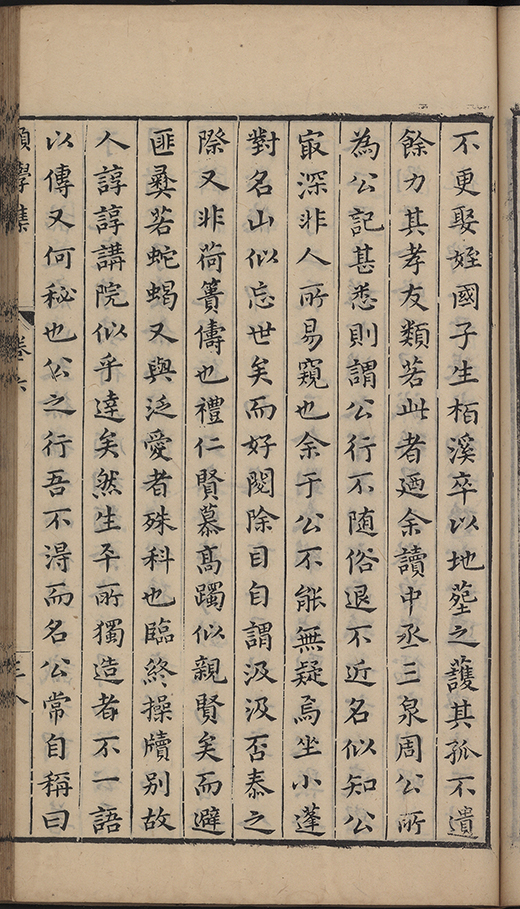 不更娶姪國子生栢溪卒以地塟之護其孤不遺
餘力其孝友類若此者廼余讀中丞三泉周公所
為公記甚悉則謂公行不随俗退不近名似知公
㝡深非人所易窺也余于公不能無疑焉坐小蓬
對名山似忘世矣而好閱除目自謂汲汲否泰之
際又非荷蕢儔也禮仁賢慕高躅似親賢矣而避
匪彜若蛇蝎又與泛愛者殊科也臨終操牘别故
人諄諄講院似乎達矣然生平所獨造者不一語
以傳又何秘也公之行吾不淂而名公常自稱曰
學集
卷六
三八